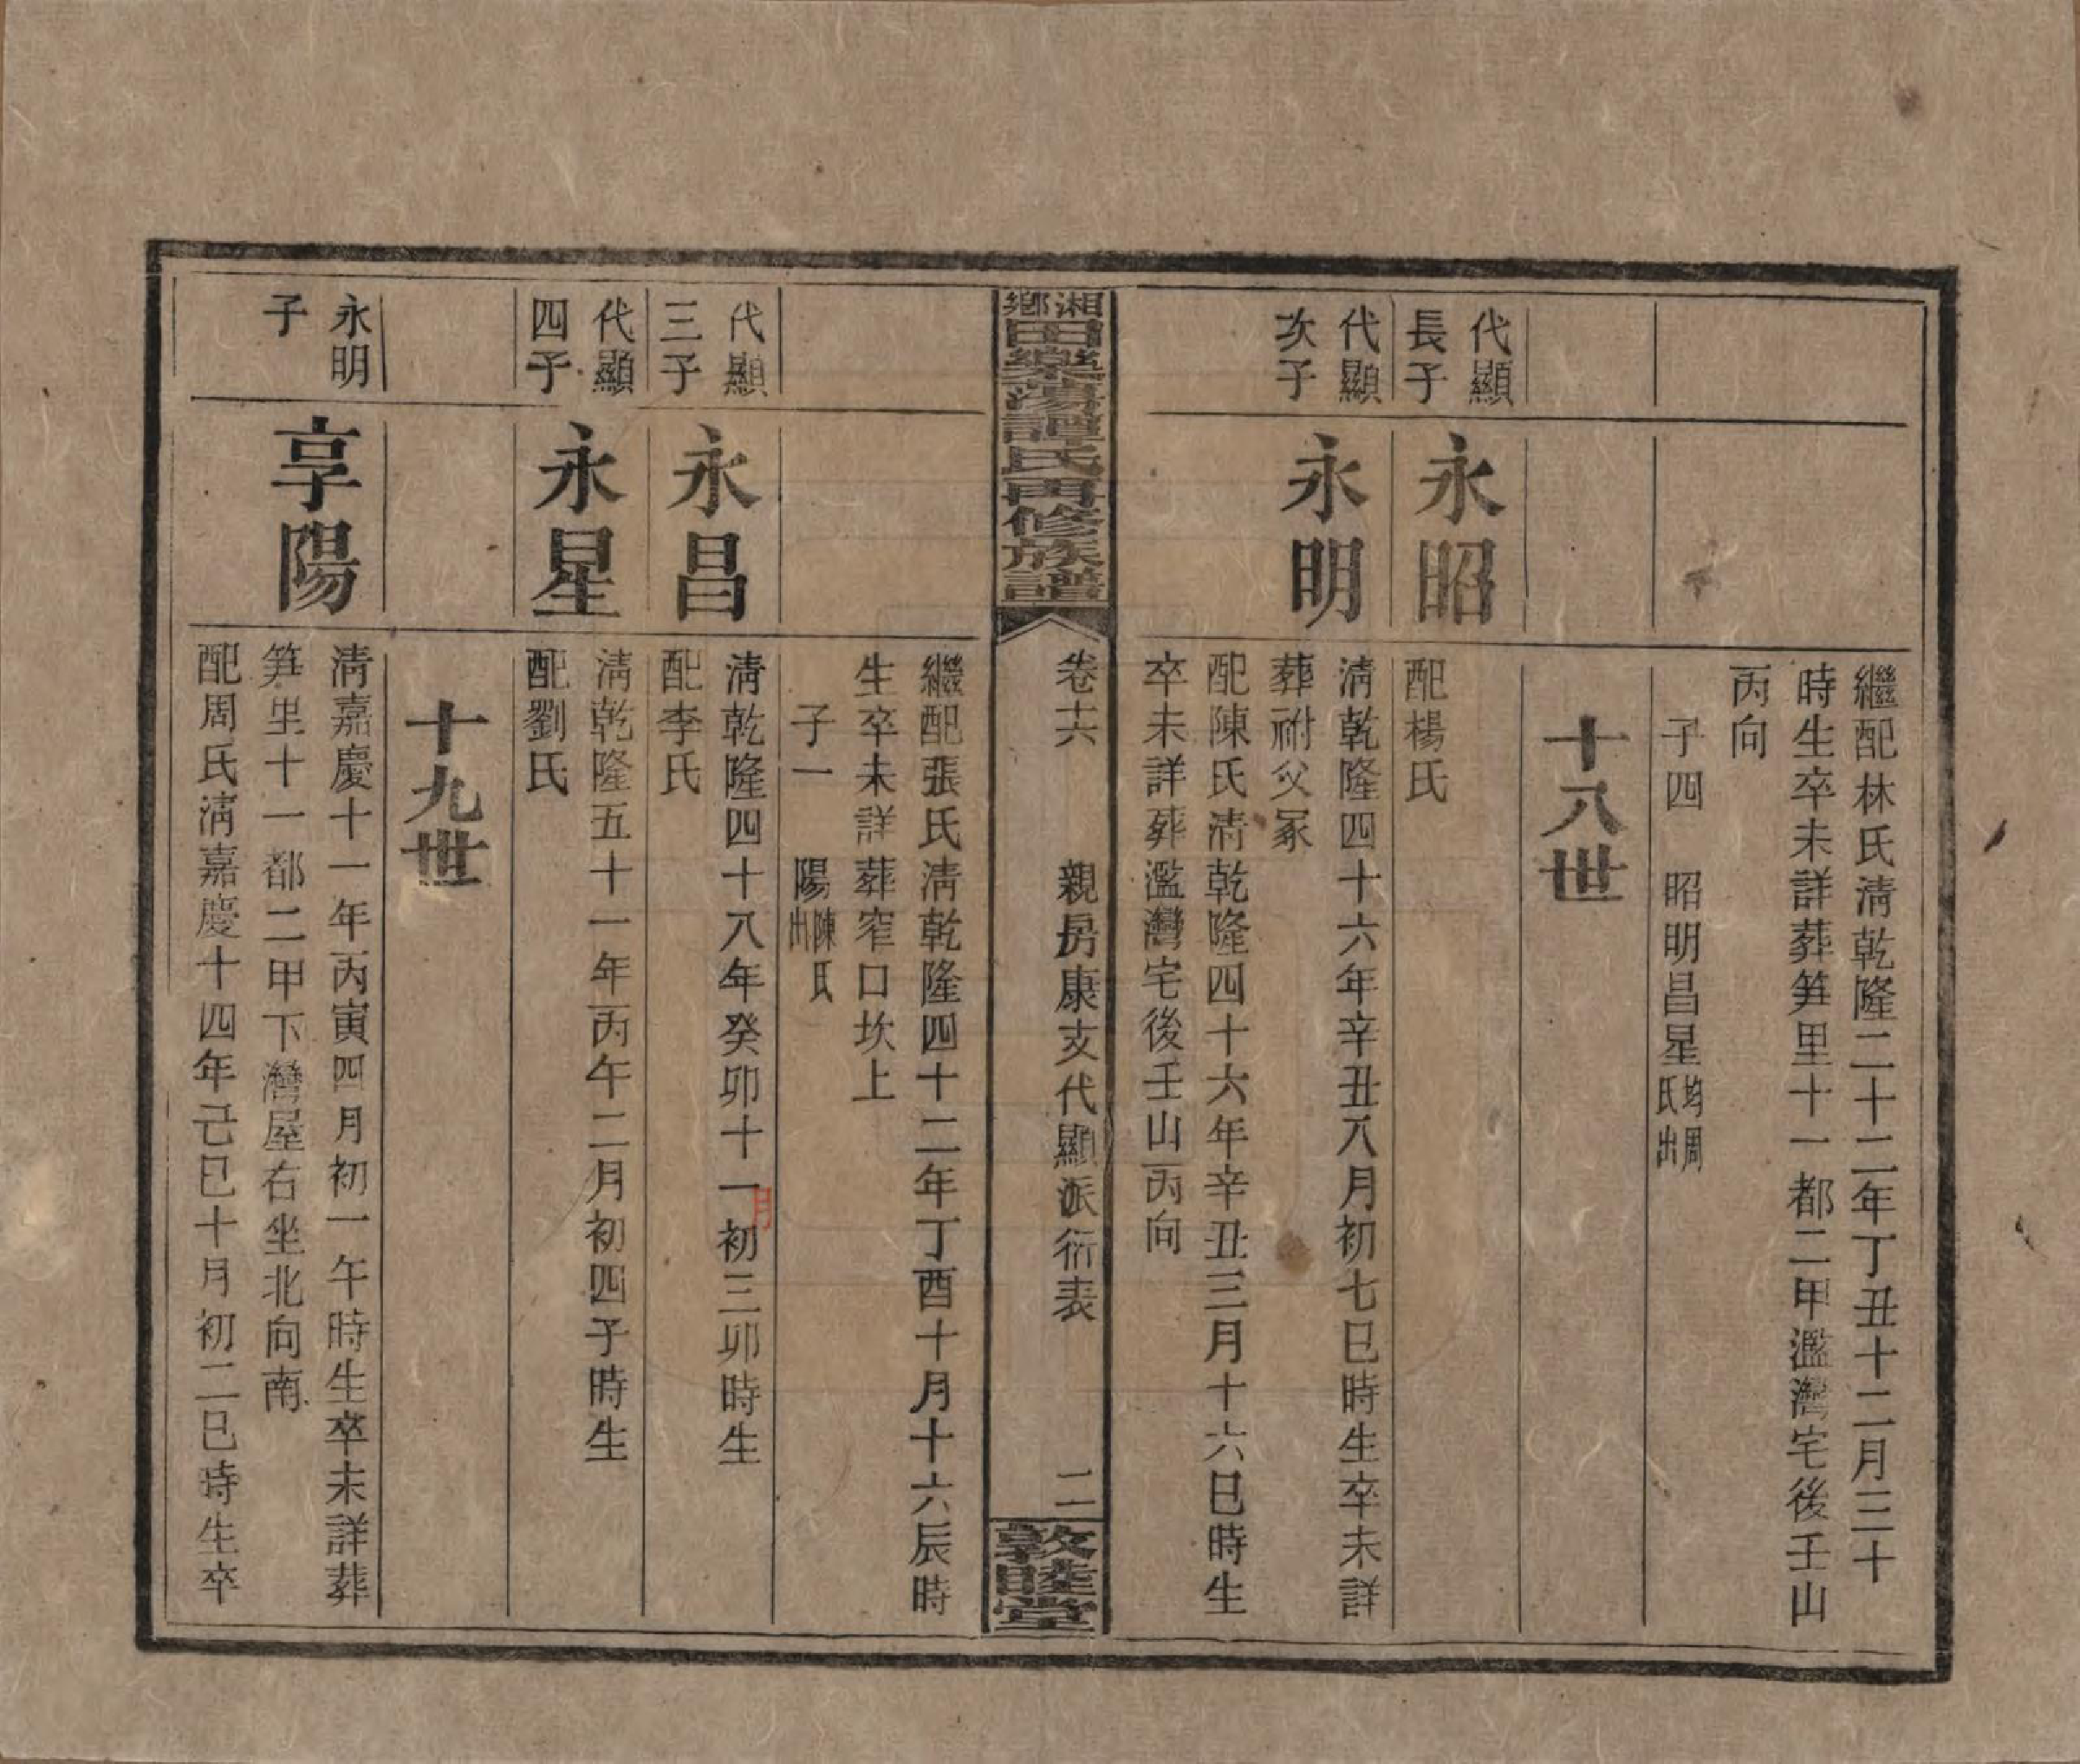 繼配林氏清乾隆二十二年丁丑十二月三十
時生卒未詳葬筭里十一都二甲濫灣宅後壬山
丙向
子四　昭明昌星均周氏出
十八世
代顯長子
永昭
配楊氏
代顯次子
永明
清乾隆四十六年辛丑八月初七巳時生卒未詳
葬祔父冢
配陳氏清乾隆四十六年辛丑三月十六巳時生
卒未詳葬濫灣宅後壬山丙向
湘鄉田樂蕩譚氏再修族譜
卷十六
親房康支代顯派衍表
二
敦睦堂
繼配張氏清乾隆四十二年丁酉十月十六辰時
生卒未詳葬窄口坎上
子一　陽陳氏出
代顯三子
永昌
清乾隆四十八年癸卯十一月初三卯時生
配李氏
代顯四子
永星
清乾隆五十一年丙午二月初四子時生
配劉氏
十九世
永明子
享陽
清嘉慶十一年丙寅四月初一午時生卒未詳葬
筭里十一都二甲下灣屋右坐北向南
配周氏清嘉慶十四年己巳十月初二巳時生卒